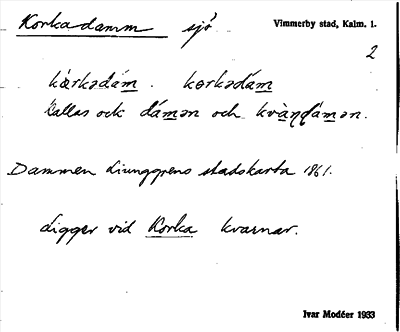 Korkadamm sjö Vimmerby stad, Kalm. l.
2
kɵrkədám . kɵrkədám
kallas ock dámən och kvàṇdámən.
Dammen Ljunggrens stadskarta 1861.
ligger vid Korka kvarnar.
Ivar Modéer 1933